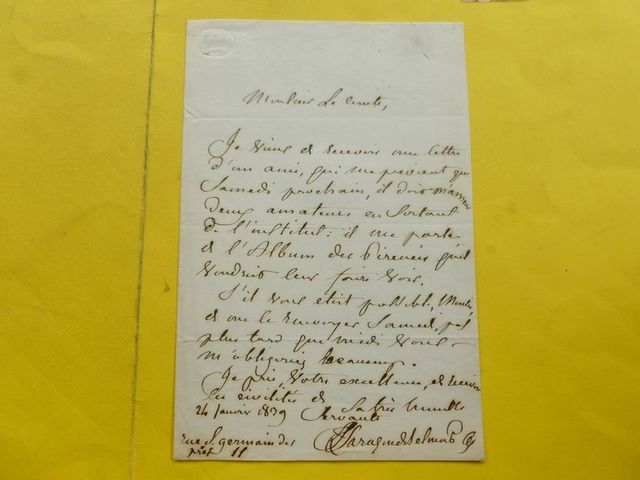 Monsieur Le Comte,
Je viens de recevoir une lettre
d'un ami, qui me previent que
Samedi prochain, il doit m'amener
deux amateurs en Sortant
de l'institut: il me parle
de l'Album des Pirenées qu'il
voudrait leur faire voir.
S'il vous etoit possible,
de me le renvoyer Samedi, pas
plus tard que midi vous
m'obligeriez beaucoup.
Je prie, Votre excellence, de recevoir
les civilités de
Sa très humble
Servante
24 Janvier 1839
rue St. germain des
près 11